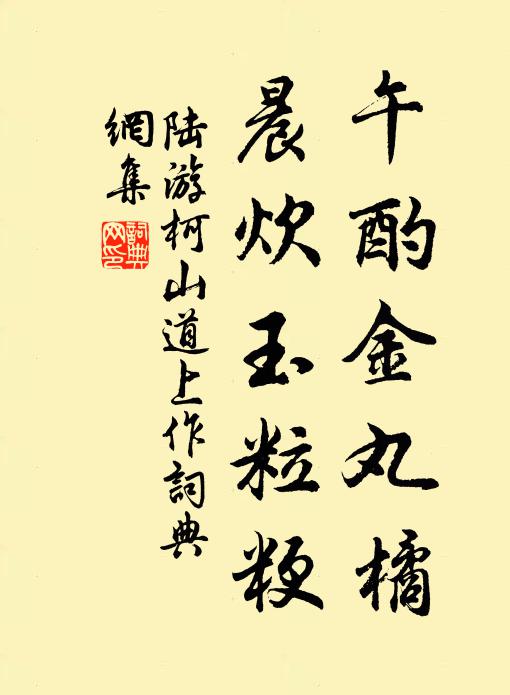 午酌金丸橘
晨炊玉粒粳
陆游柯山道上作词典
網集
詞典網印